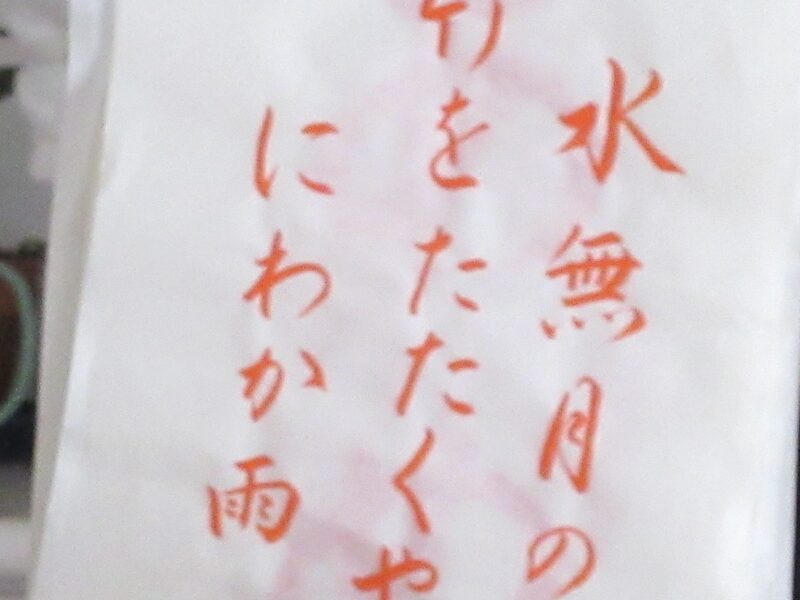 水無月の
竹をたたくや
にわか雨